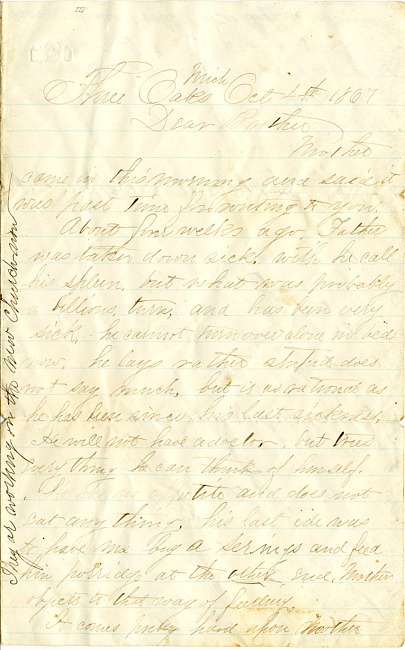 Mich
Three Oaks Oct 4th 1867
Dear Brother
Mother
came in this morning and said it
was past time for writing to you.
About four weeks ago, Father
was taken down sick, with he call
his spleen, but what was probably
a billious turn, and has been very
sick, he cannot turn over alone in bed
now, he lays rather stupid does
not say much, but is as rational as
he has been since his last sickness.
He will not have a doctor, but tries
every thing he can think of himself.
appetite and does not
eat any thing, his last ide was
to have me buy a serings and feed
him porridge at the other end, Mother
objects to that way of feeding
It comes pretty hard upon Mother
They ar working on the new Church now